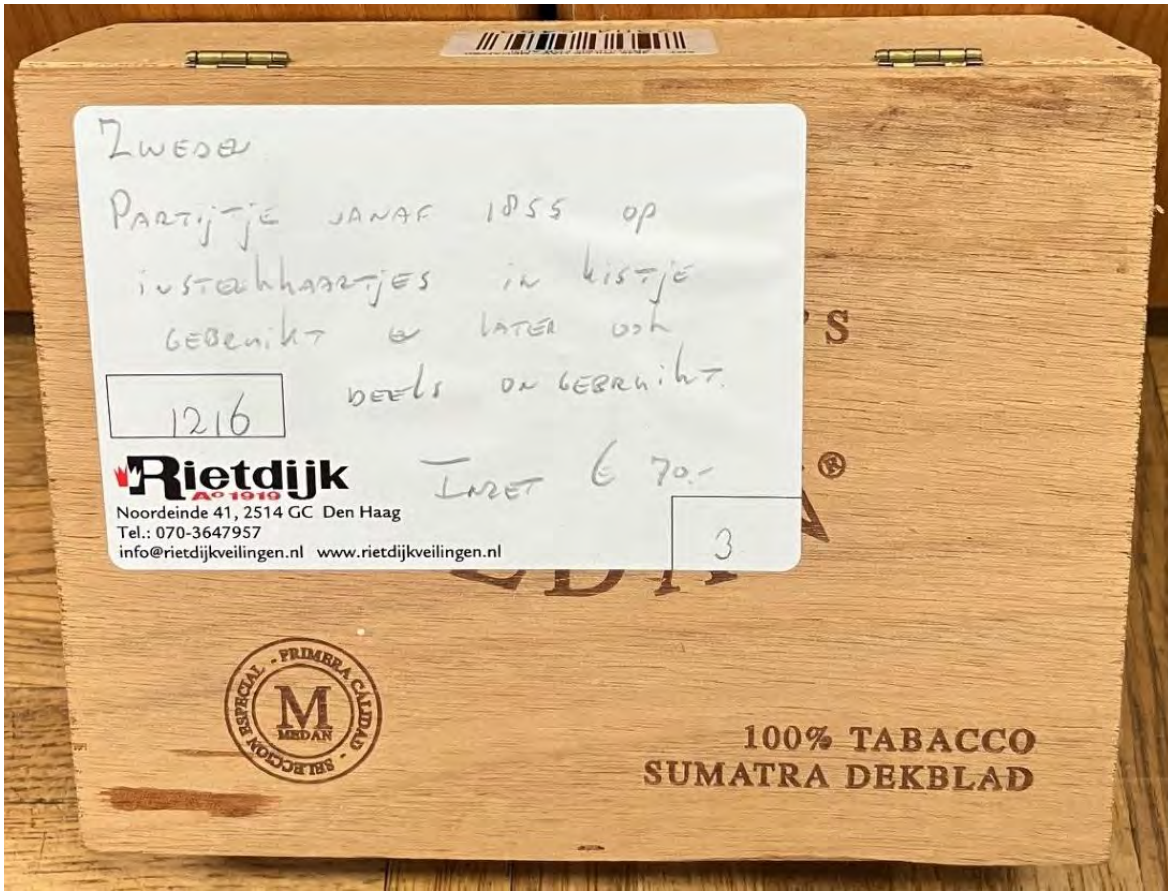 Zweden
Partijtje vanaf 1855 op
insteekkaartjes in kistje
gebruikt en later ook
deels ongebruikt.
1216
Inzet € 70.-
Rietdijk
Aº 1919
Noordeinde 41, 2514 GC Den Haag
Tel.: 070-3647957
info@rietdijkveilingen.nl www.rietdijkveilingen.nl
3
'S
®
SELECCION ESPECIAL - PRIMERA CALIDAD -
M
MEDAN
100% TABACCO
SUMATRA DEKBLAD